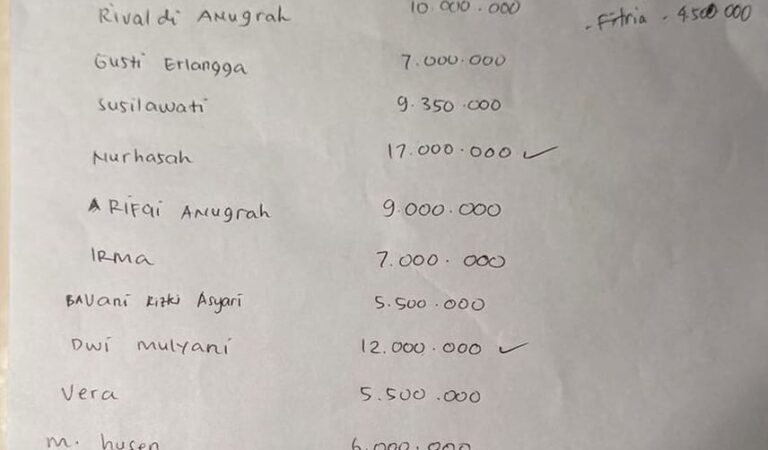 Rivaldi Anugrah 10.000.000 - Fitria - 4.500 000
Gusti Erlangga 7.000.000
Susilawati 9.350.000
Nurhasah 17.000.000 ✓
A Rifqi Anugrah 9.000.000
Irma 7.000.000
Bavani Rizki Asyari 5.500.000
Dwi Mulyani 12.000.000 ✓
Vera 5.500.000
M. husen 6.000.000